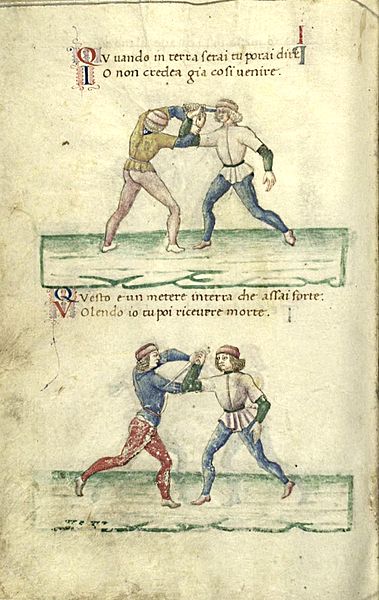 QVuando in terra serai tu porai dire
IO non credea gia cosi venire.
QVesto e un metere in terra che assai forte:
VOlendo io tu poi riceuere morte.